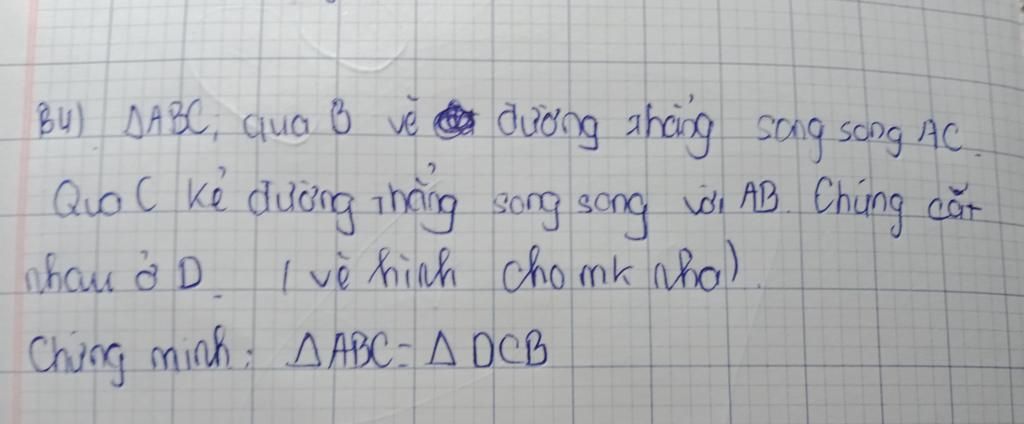 B4) ΔABC, qua B vẽ đường thẳng song song AC.
Qua C kẻ đường thẳng song song với AB. Chúng cắt
nhau ở D. (vẽ hình cho mk nha).
Chứng minh: Δ ABC = Δ DCB